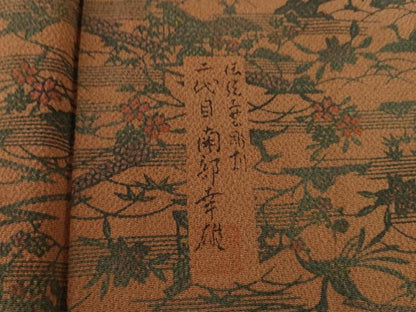 伝統工芸彫刻
二代目南部幸雄